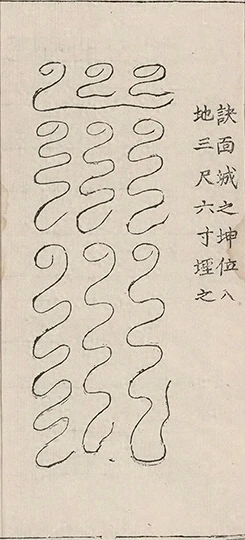 訣面城之坤位入
地三尺六寸堙之